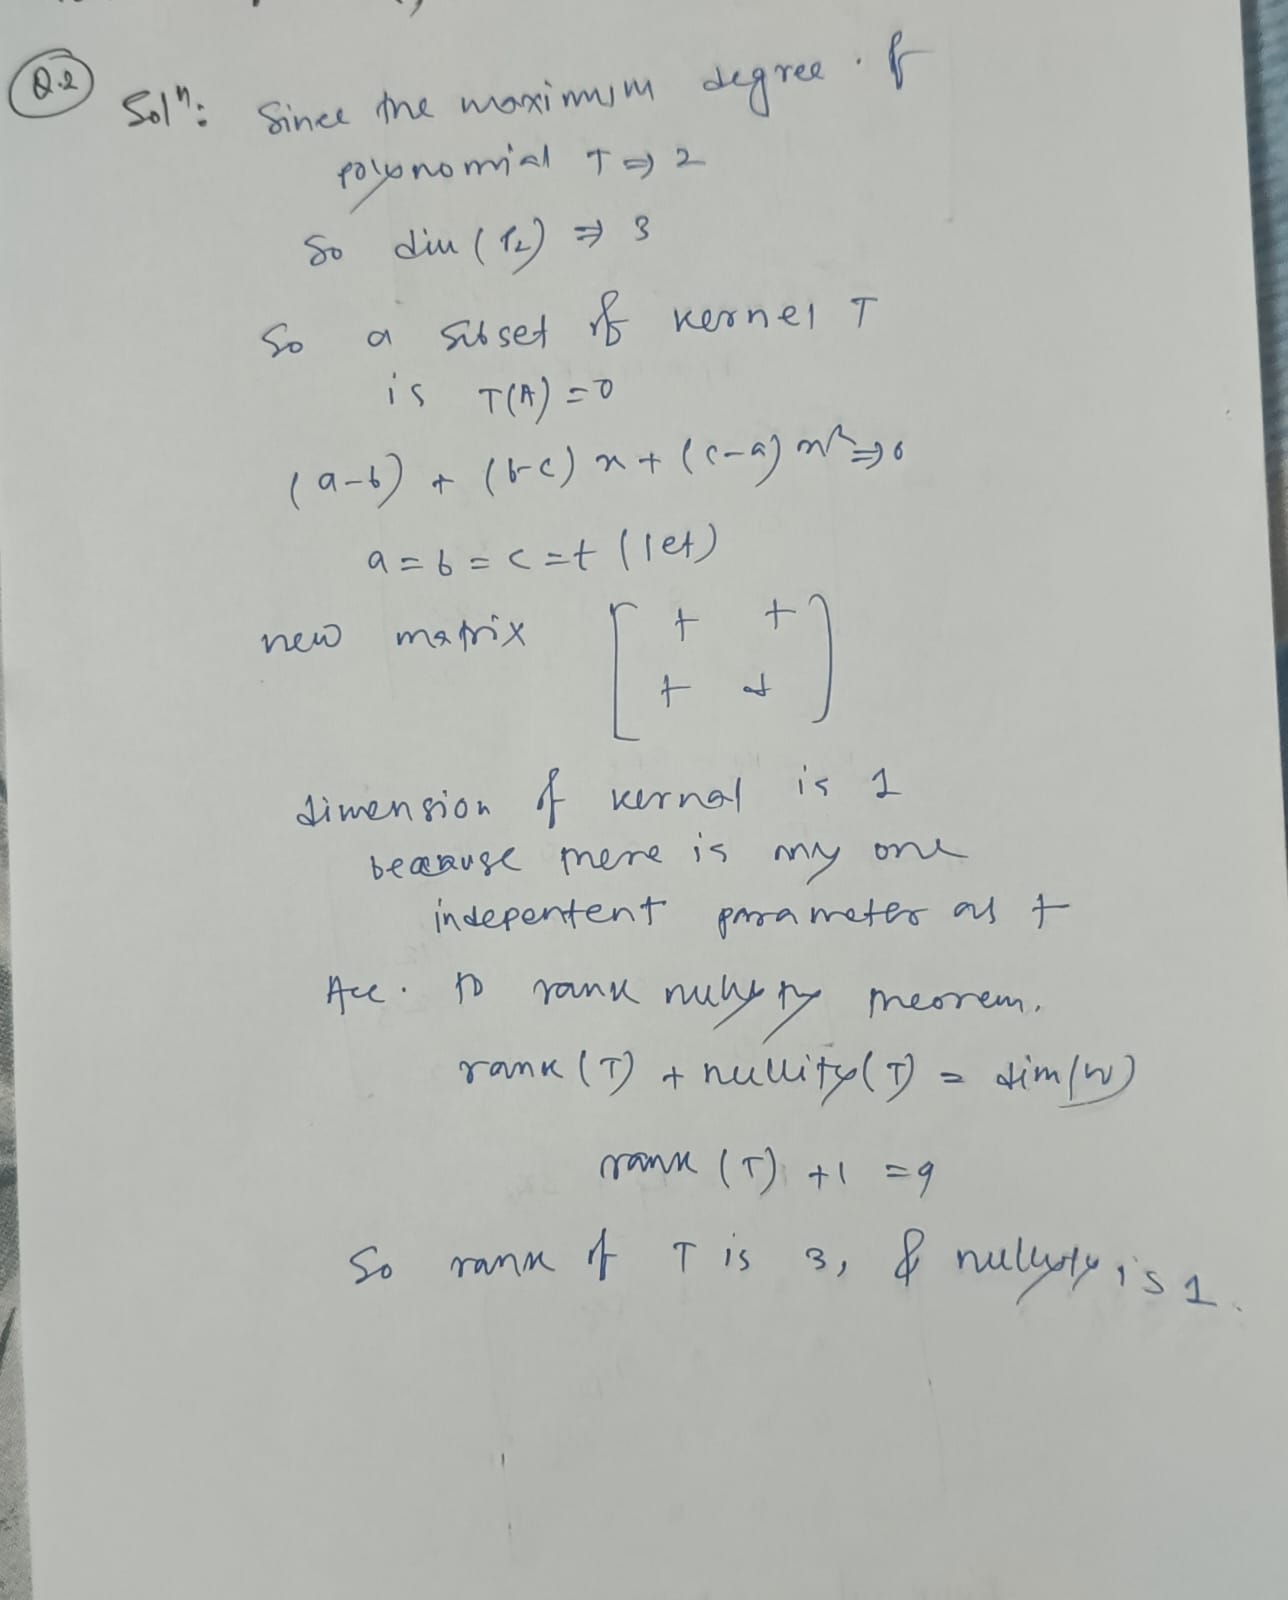 Q.2
Solⁿ: Since the maximum degree of
polynomial T ⇒ 2
So dim (P₂) ⇒ 3
So a subset of kernel T
is T(A) = 0
(a-b) + (b-c) x + (c-a) x² ⇒ 0
a = b = c = t (let)
new matrix [ t t
t t ]
dimension of kernal is 1
because there is only one
indepentent parameter as t
Acc. to rank nullity theorem.
rank (T) + nullity (T) = dim (W)
rank (T) + 1 = 4
So rank of T is 3, & nullity is 1.